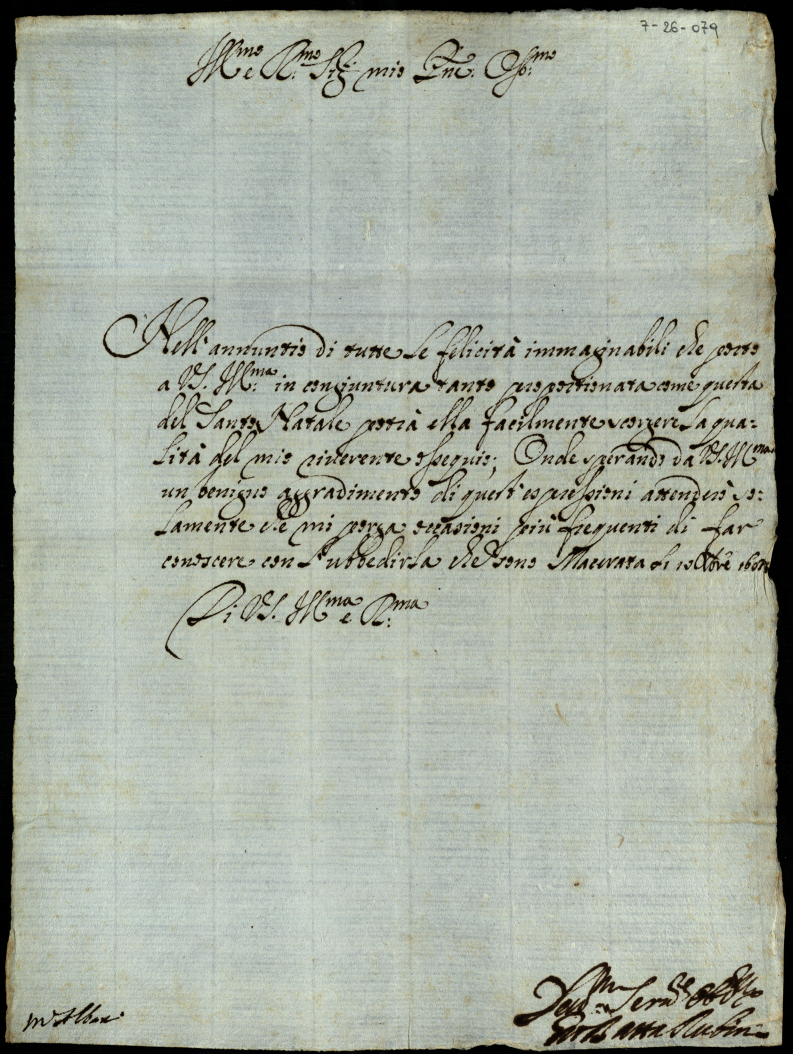 7-26-079
Ill.mo e R.mo Sig.r mio P.ne Oss.mo
Nell'annuntio di tutte le felicità immaginabili che porto
a V.S. Ill.ma in congiuntura tanto proportionata come questa
del Santo Natale potrà ella facilmente scorgere la qua-
lità del mio riverente ossequio; Onde sperando da V.S. Ill.ma
un benigno aggradimento di quest'espressioni attenderò so-
lamente che mi porga occasioni più frequenti di far
conoscere con l'ubbedirla che sono Macerata li Xbre
Di V.S. Ill.ma e R.ma
Dev.mo Ser.re Obl.mo
Gio Batta Rubini